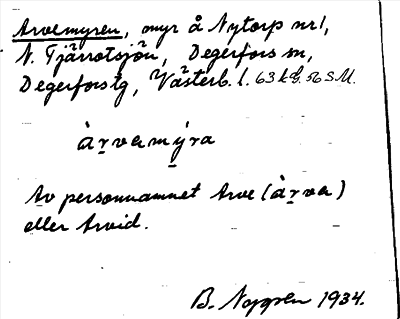 Arvemyren, myr å Nytorp nr 1,
N. Tjärrotsjön, Degerfors sn,
Degerfors tg, Västerb. l. 63 kg. 56 S.M.
àrvamýra
Av personnamnet Arve (àrva)
eller Arvid.
B. 1934.